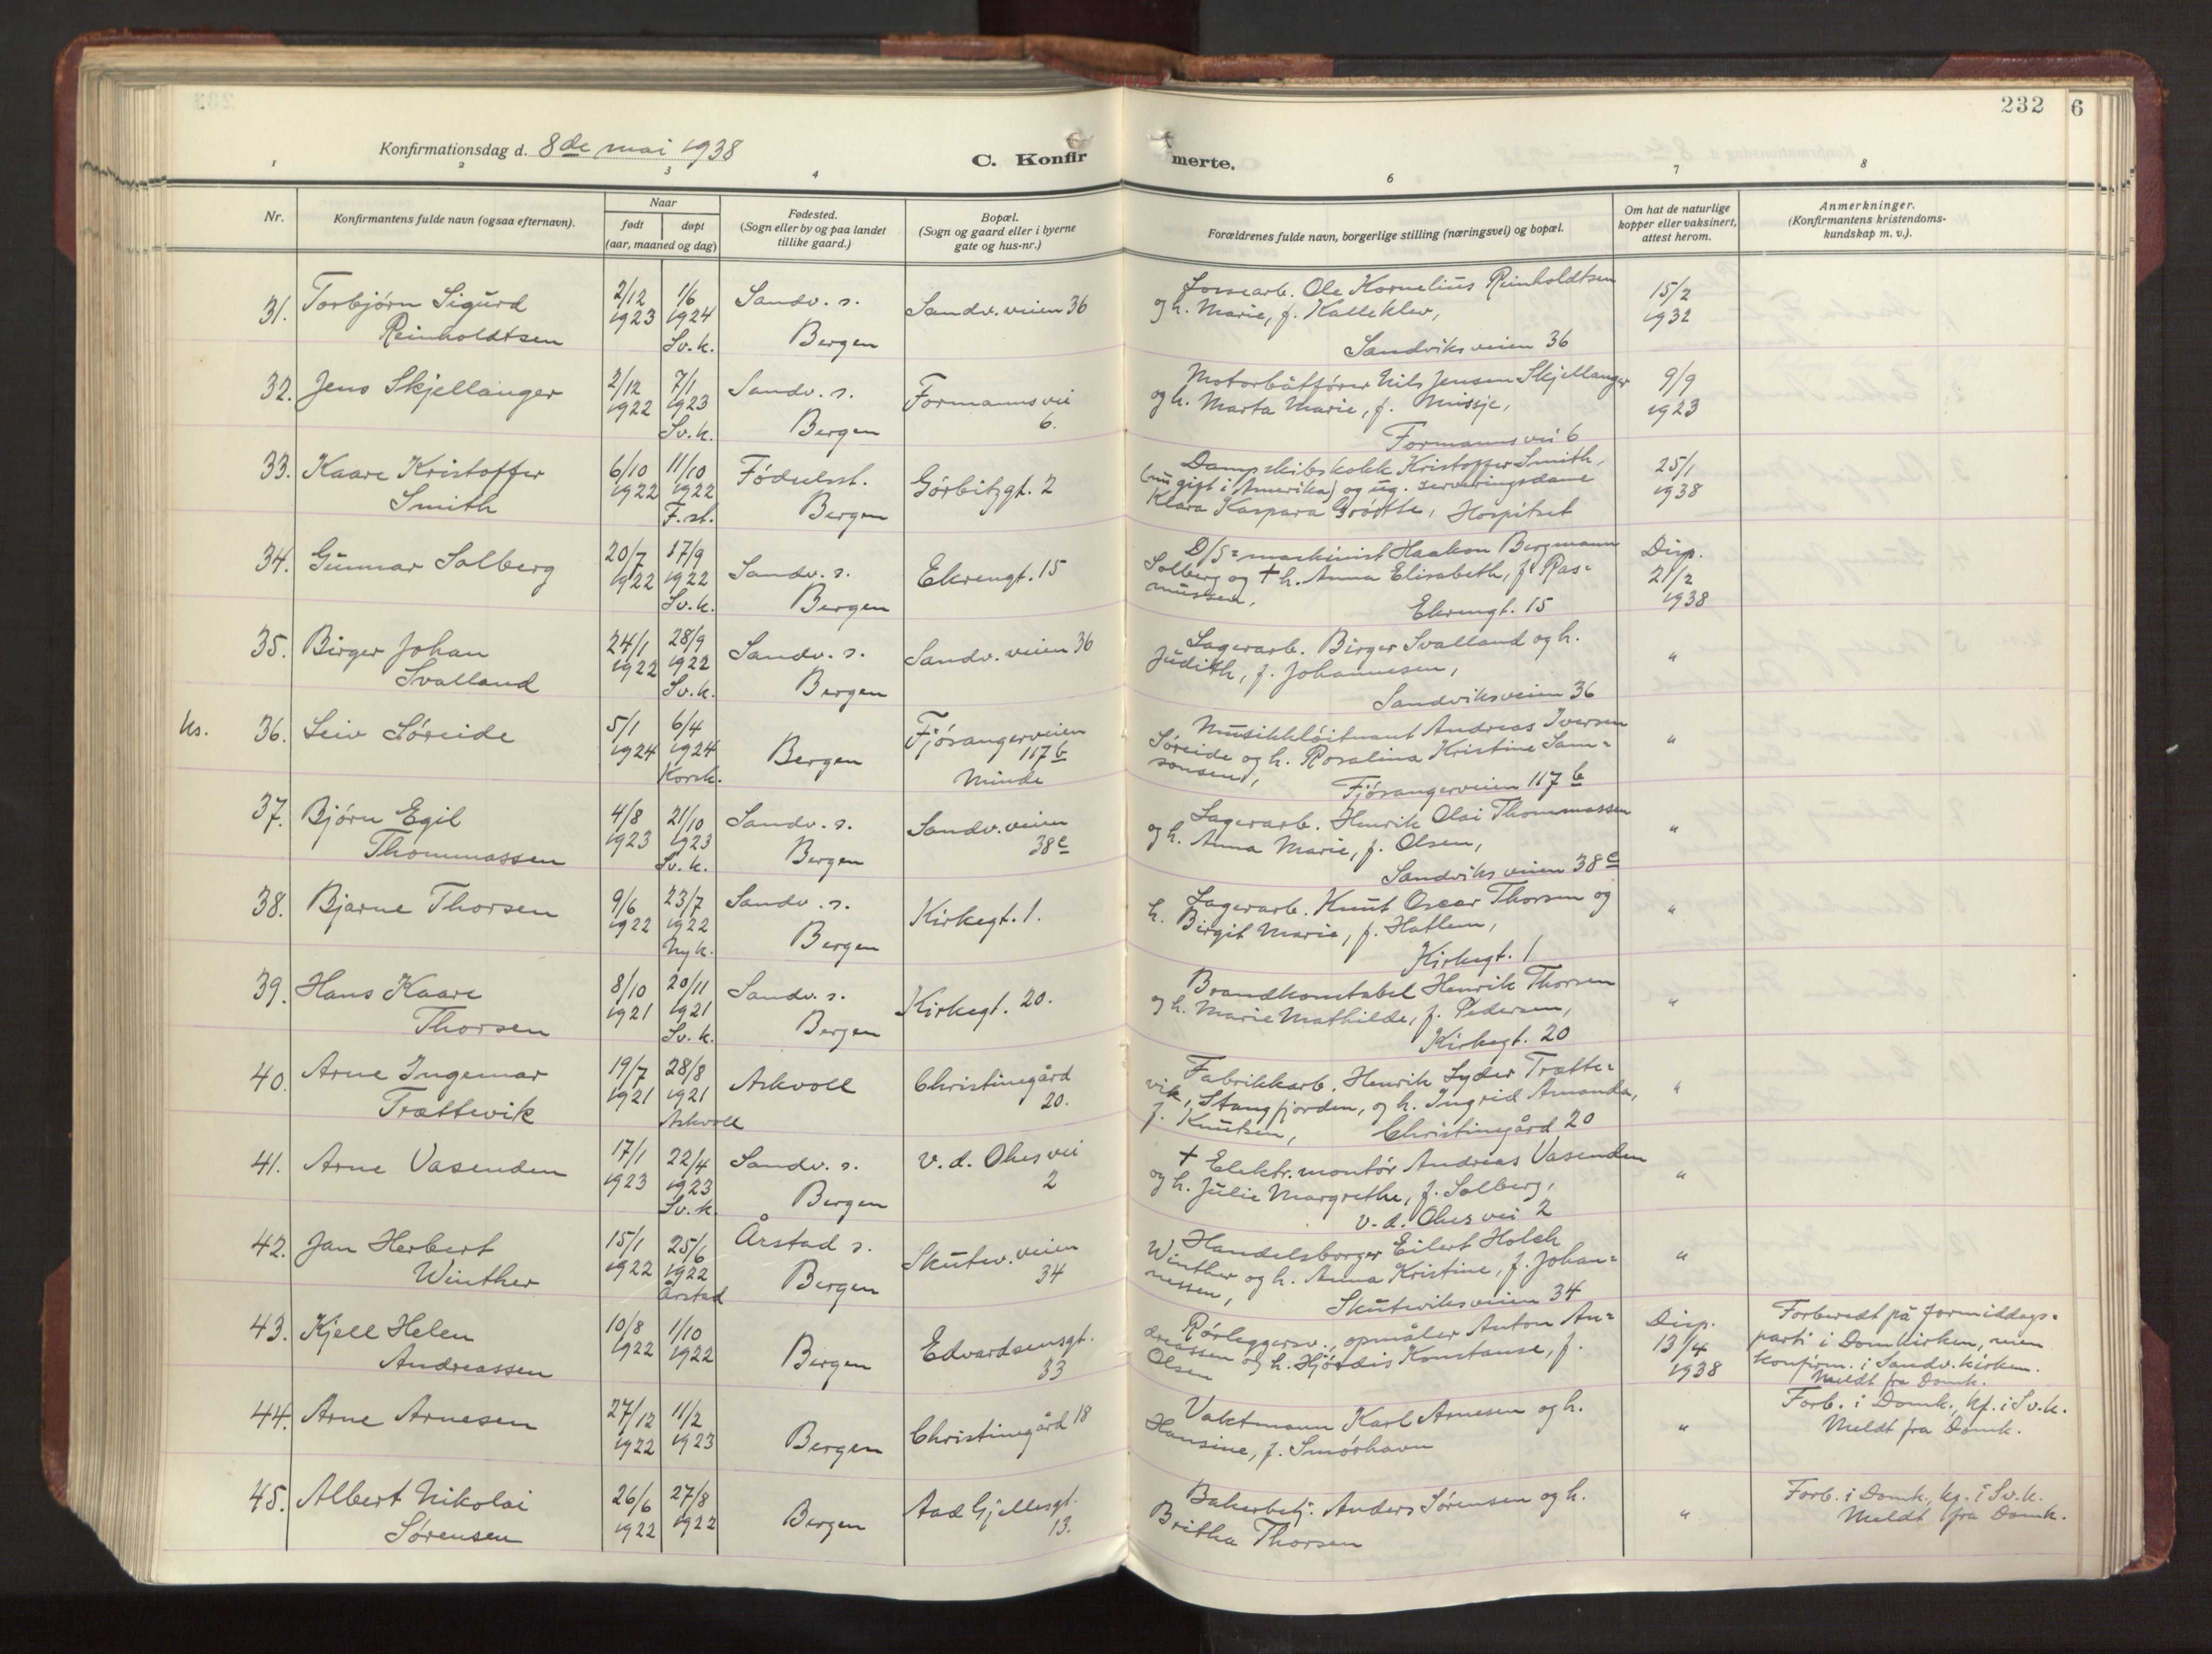 232 6
Konfirmationsdag d. 8de mai 1938
C. Konfirmerte.
1 2 3 4 6 7 8
Nr.
Konfirmantens fulde navn (ogsaa efternavn).
Naar
født døpt
(aar, maaned og dag)
Fødested.
(Sogn eller by og paa landet
tillike gaard.)
Bopæl.
(Sogn og gaard eller i byerne
gate og hus-nr.)
Forældrenes fulde navn, borgerlige stilling (næringsvei) og bopæl.
Om hat de naturlige
kopper eller vaksinert,
attest herom.
Anmerkninger.
(Konfirmantens kristendoms-
kundskap m. v.).
31. Torbjørn Sigurd
Reinholdtsen
2/12
1923
1/6
1924
Sv.k.
Sandv. s.
Bergen
Sandv. veien 36
Ole Kornelius Reinholdtsen
og h. Marie, f. Kalleklev,
Sandviksveien 36
15/2
1932
32. Jens Skjellanger
2/12
1922
7/1
1923
Sv.k.
Sandv. s.
Bergen
Formannsvei
6.
Motorbåtfører Nils Jensen Skjellanger
og h. Marta Marie, f. Missje,
Formannsvei 6
9/9
1923
33. Kaare Kristoffer
Smith
6/10
1922
11/10
1922
F.st.
Fødselsst.
Bergen
Görbitzgt. 2
Dampskibskokk Kristoffer Smith,
(nu gift i Amerika) og ug. serveringsdame
Klara Kaspara Grøtte, Hospitset
25/1
1938
34. Gunnar Solberg
20/7
1922
17/9
1922
Sv.k.
Sandv. s.
Bergen
Ekrengt. 15
D/S=maskinist Haakon Bergmann
Solberg og † h. Anna Elisabeth, f. Ras=
mussen,
Ekrengt. 15
Disp.
21/2
1938
35. Birger Johan
Svalland
24/1
1922
28/9
1922
Sv.k.
Sandv. s.
Bergen
Sandv. veien 36
Lagerarb. Birger Svalland og h.
Judith, f. Johannesen,
Sandviksveien 36
"
ks. 36. Leiv Søreide
5/1
1924
6/4
1924
Korsk.
Bergen
Fjøsangerveien
117 b
Minde
Musikkløitnant Andreas Iversen
Søreide og h. Rosalina Kristine Sam=
sonsen,
Fjøsangerveien 117 b
"
37. Bjørn Egil
Thommassen
4/8
1923
21/10
1923
Sv.k.
Sandv. s.
Bergen
Sandv. veien
38c
Lagerarb. Henrik Olai Thommassen
og h. Anna Marie, f. Olsen,
Sandviksveien 38c
"
38. Bjarne Thorsen
9/6
1922
23/7
1922
Nyk.
Sandv. s.
Bergen
Kirkegt. 1.
Lagerarb. Knut Oscar Thorsen og
h. Birgit Marie, f. Hatlem,
Kirkegt. 1
"
39. Hans Kaare
Thorsen
8/10
1921
20/11
1921
Sv.k.
Sandv. s.
Bergen
Kirkegt. 20.
Brandkonstabel Henrik Thorsen
og h. Marie Mathilde, f. Pedersen,
Kirkegt. 20
"
40. Arne Ingemar
Trættevik
19/7
1921
28/8
1921
Askvoll
Askvoll
Christinegård
20.
Fabrikkarb. Henrik Lyder Trætte=
vik, Stangfjorden, og h. Ingrid Amanda,
f. Knutsen, Christinegård 20
"
41. Arne Vasenden
17/1
1923
22/4
1923
Sv.k.
Sandv. s.
Bergen
v. d. Ohesvei
2
† Elektr. montør Andreas Vasenden
og h. Julie Margrethe, f. Solberg,
v. d. Ohesvei 2
"
42. Jan Herbert
Winther
15/1
1922
25/6
1922
Årstad
Årstad s.
Bergen
Skutev. veien
34
Handelsborger Eilert Holck
Winther og h. Anna Kristine, f. Johan=
nessen,
Skuteviksveien 34
"
43. Kjell Helen
Andreassen
10/8
1922
1/10
1922
Bergen
Edvardsensgt.
33
Rørleggersv., opmåler Anton An=
dreassen og h. Hjørdis Konstanse, f.
Olsen
Disp.
13/4
1938
Forberedt på formiddags=
parti i Domkirken, men
konfirm. i Sandv. kirken.
Meldt fra Domk.
44. Arne Arnesen
27/12
1922
11/2
1923
Bergen
Christinegård 18
Vaktmann Karl Arnesen og h.
Hansine, f. Smørhavn
"
Forb. i Domk., kf. i Sv.k.
Meldt fra Domk.
45. Albert Nikolai
Sørensen
26/6
1922
27/8
1922
Bergen
Aad Gjellesgt.
13.
Bakerbetj. Anders Sørensen og h.
Britha Thorsen
"
Forb. i Domk., kf. i Sv.k.
Meldt fra Domk.